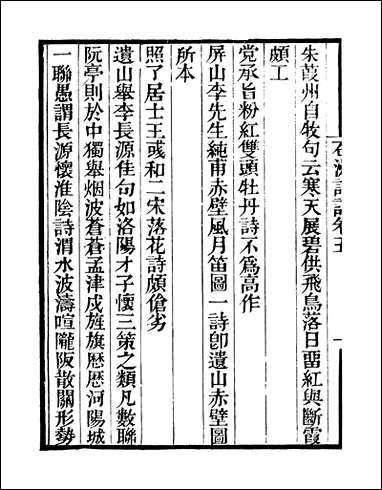 石洲詩話卷五 一
朱葭州自牧句云寒天展碧供飛鳥落日畱紅與斷霞
頗工
党承旨粉紅雙頭牡丹詩不爲高作
屏山李先生純甫赤壁風月笛圖一詩卽遺山赤壁圖
所本
照了居士王彧和二宋落花詩頗傖劣
遺山舉李長源佳句如洛陽才子懷三策之類凡數聯
阮亭則於中獨舉烟波蒼蒼孟津戍旌旗歴歴河陽城
一聯愚謂長源懷淮陰詩渭水波濤喧隴阪散關形勢